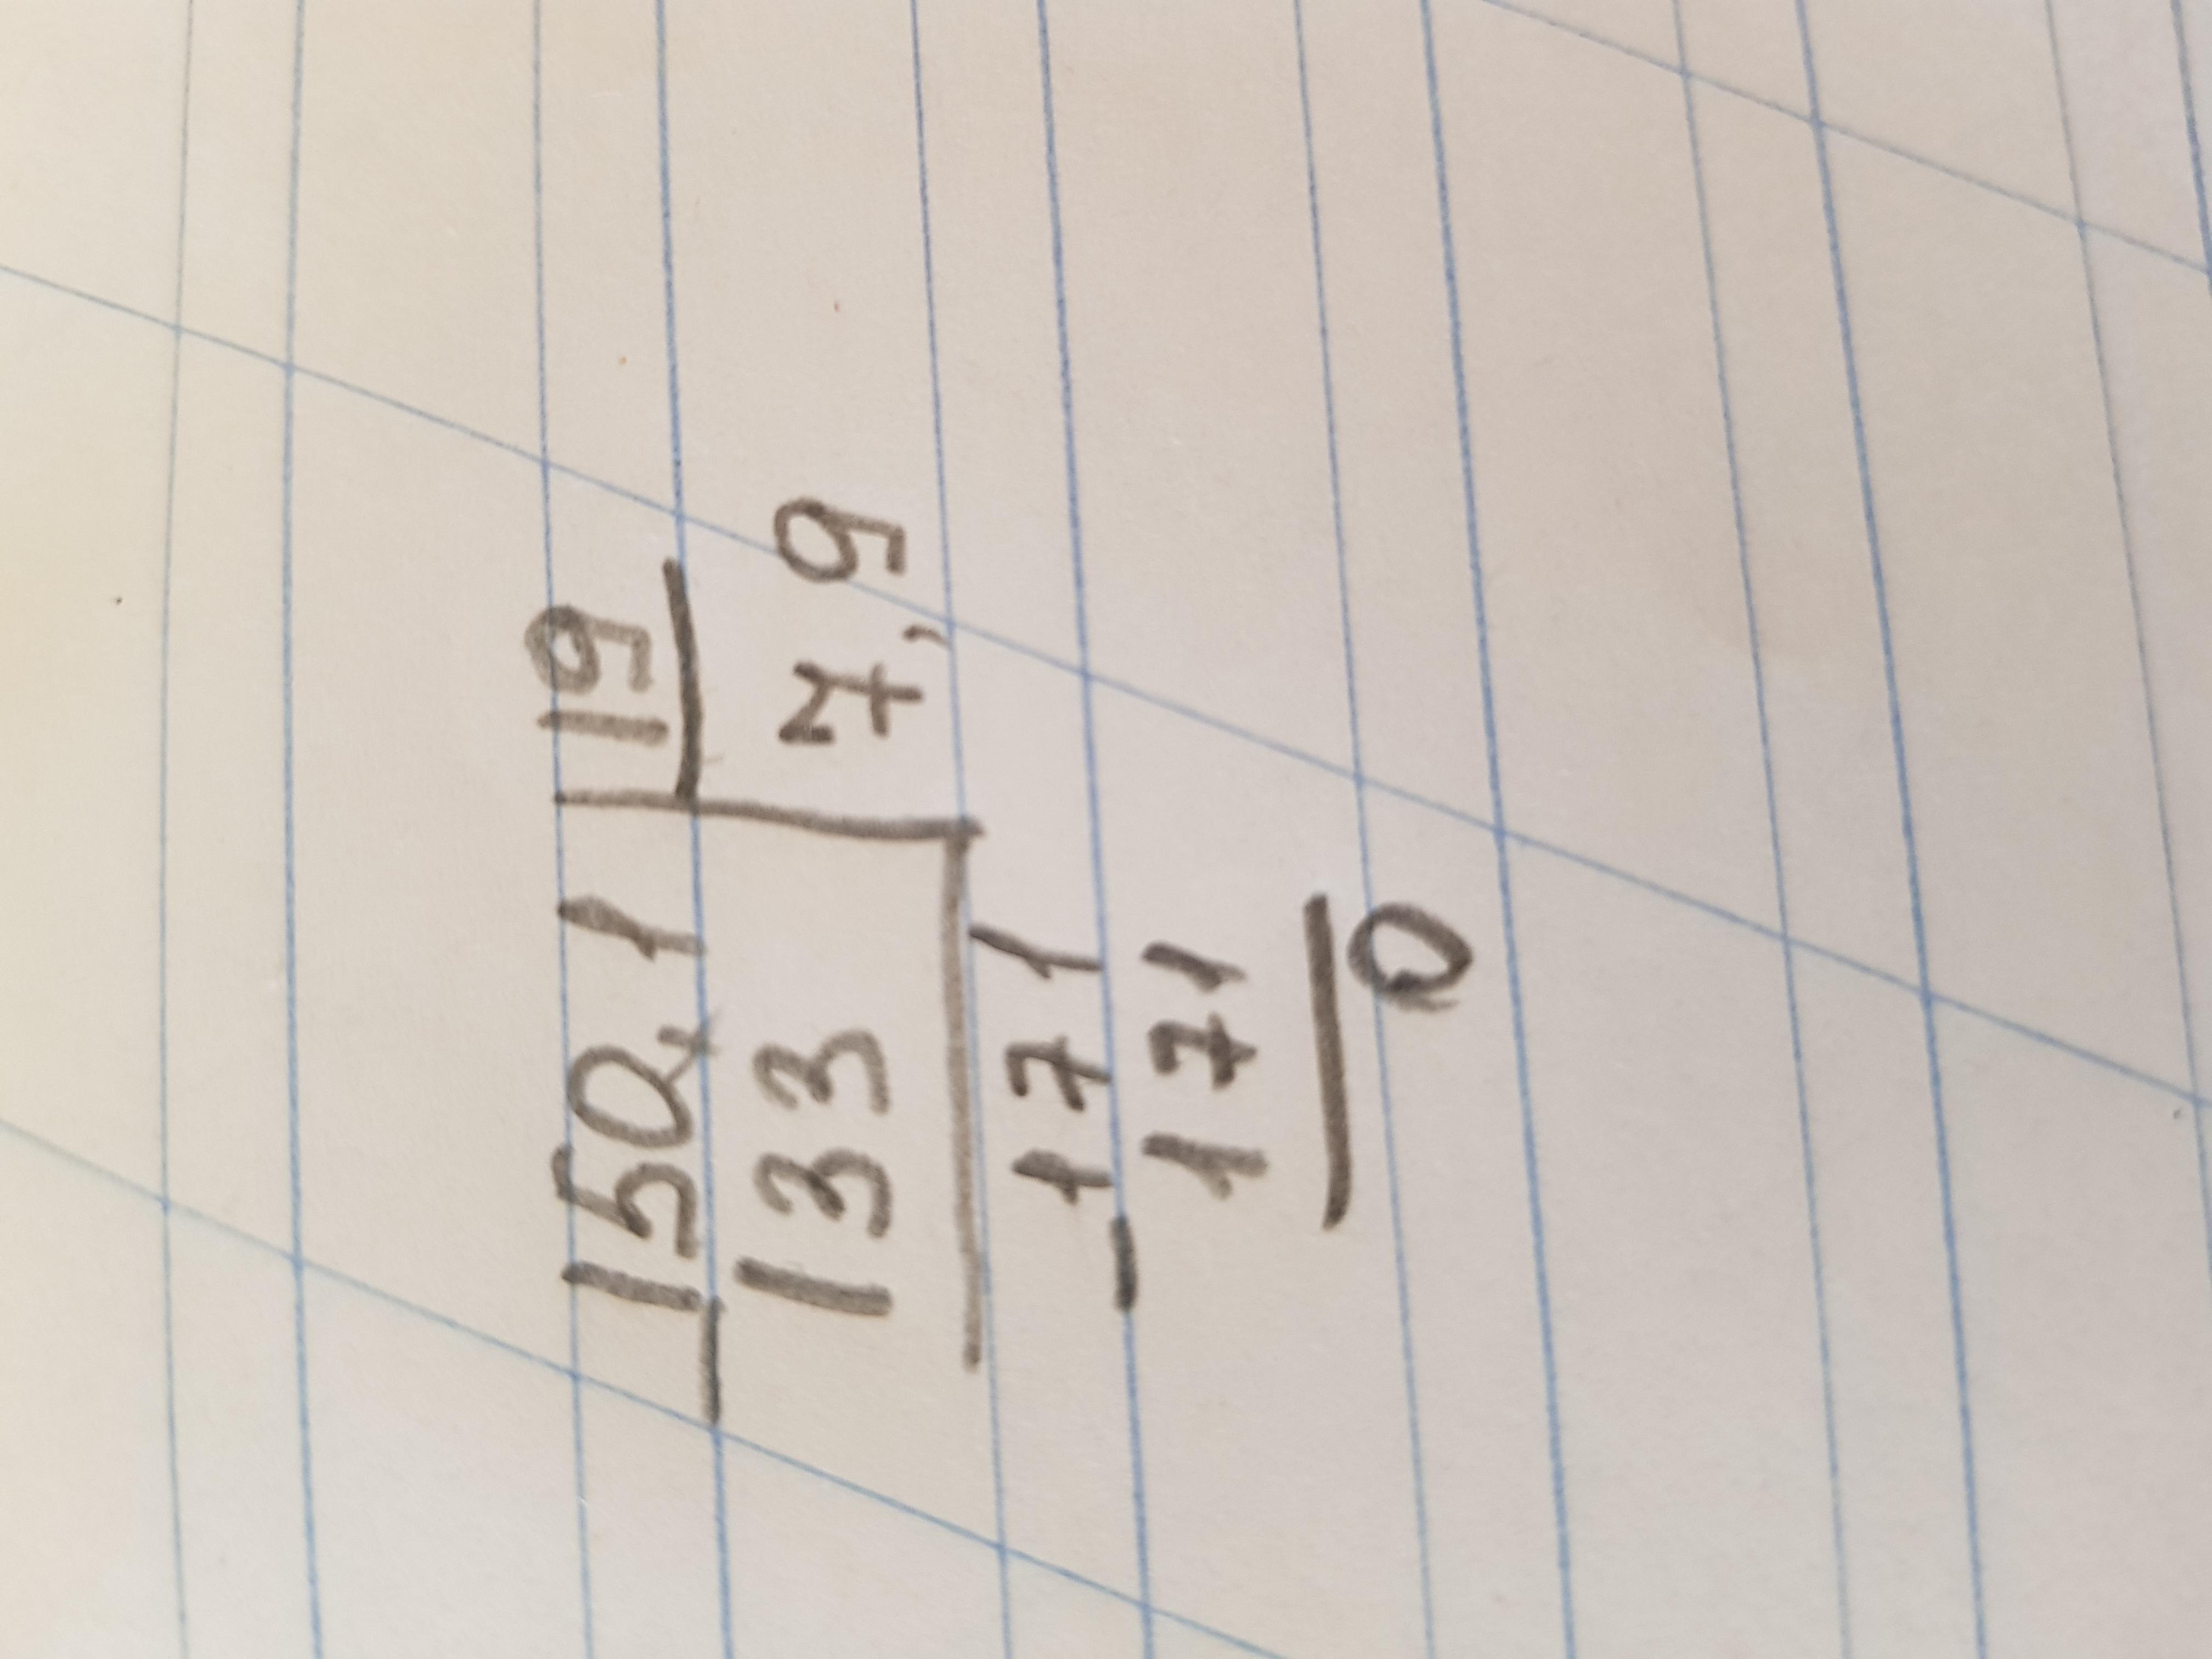 150,1 19
133 7,9
171
171
0